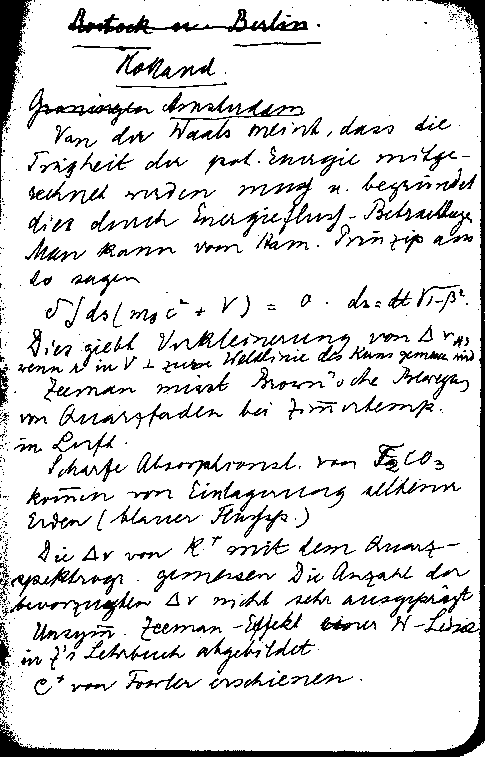 Rostock u. Berlin.
Holland.
Groningen Amsterdam
Van der Waals meint, dass die
Trägheit der pot. Energie mitge-
rechnet werden muß u. begründet
dies durch Energiefluß-Betrachtung
Man kann vom Ham. Prinzip aus
so sagen
δ∫ds(m₀c² + V) = 0. ds = dt√1-β².
Dies giebt Verkleinerung von Δν
wenn in V ⊥ zur Weltlinie des Kerns gemessen wird
Zeeman misst Brown'sche Bewegung
von Quarzfaden bei Zim̅ertemp.
in Luft.
Scharfe Absorptionsl. von CO₃
kom̅en von Einlagerung seltener
Erden (blauer Flußsp.)
Die Δν von K⁺ mit dem Quarz-
spektrogr. gemessen Die Anzahl der
bevorzugten Δν nicht sehr ausgeprägt
Unsym̅. Zeeman-Effekt einer W-Linie
in Z's Lehrbuch abgebildet.
C⁺ von Fowler erschienen.